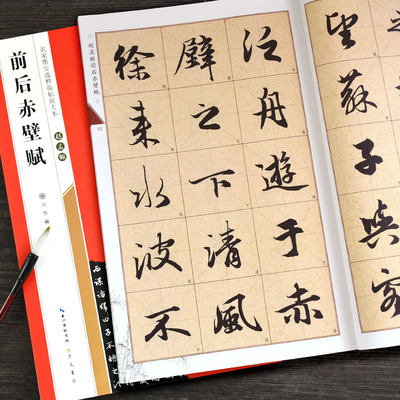 名家墨宝选粹临帖放大本
前后赤壁赋
赵孟頫
长江出版传媒
崇文书局
赵孟頫前后赤壁赋
望蘇子與客
泛舟遊于赤
壁之下清風
徐来水波不